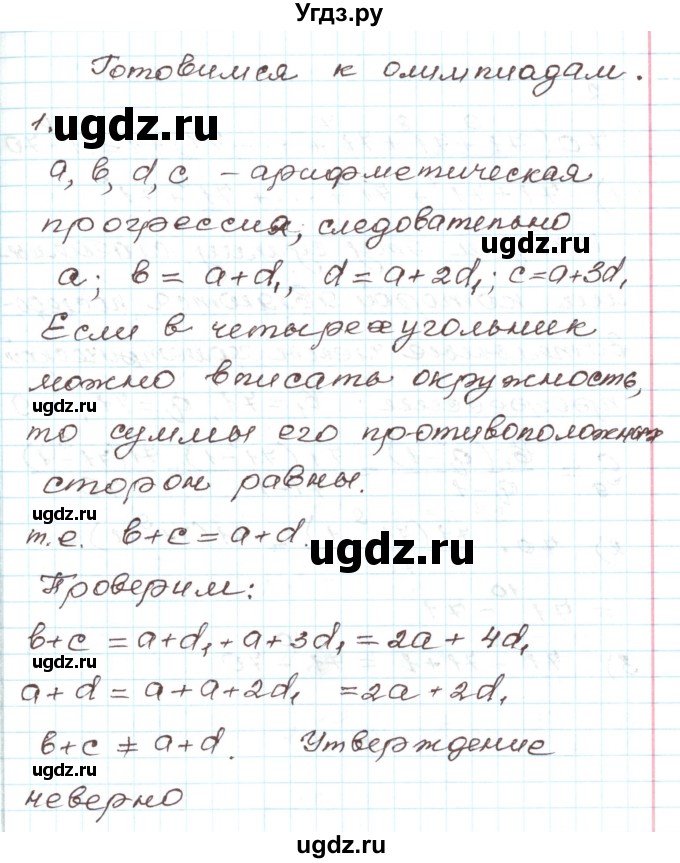 Угдз.ру
Готовимся к олимпиадам.
1. ugdz.ru
a, b, d, c – арифметическая
прогрессия, следовательно
ugdz.ru
a; b = a+d₁, d = a+2d₁; c=a+3d₁
Если в четырехугольник
можно вписать окружность,
ugdz.ru
то суммы его противоположных
сторон равны.
ugdz.ru
т.е. b+c = a+d.
ugdz.ru
Проверим:
b+c = a+d₁+a+3d₁ = 2a + 4d₁
ugdz.ru
a+d = a+a+2d₁ = 2a+2d₁
b+c ≠ a+d. Утверждение
ugdz.ru
неверно
ugdz.ru